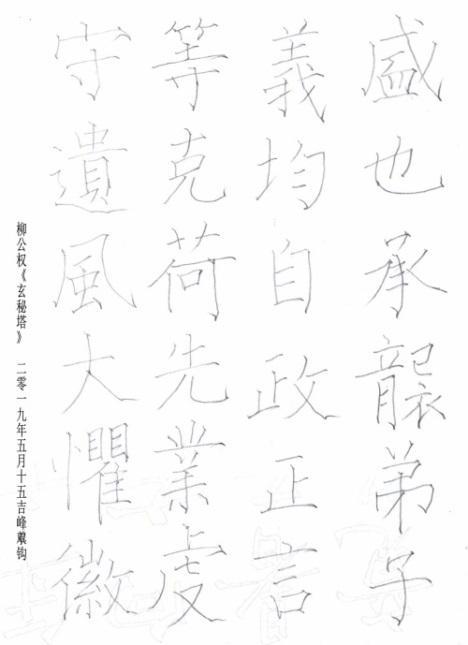 盛也承襲弟子
義均自政正言
等克荷先業虔
守遺風大懼徽
柳公权《玄秘塔》 二零一九年五月十五吉峰钩